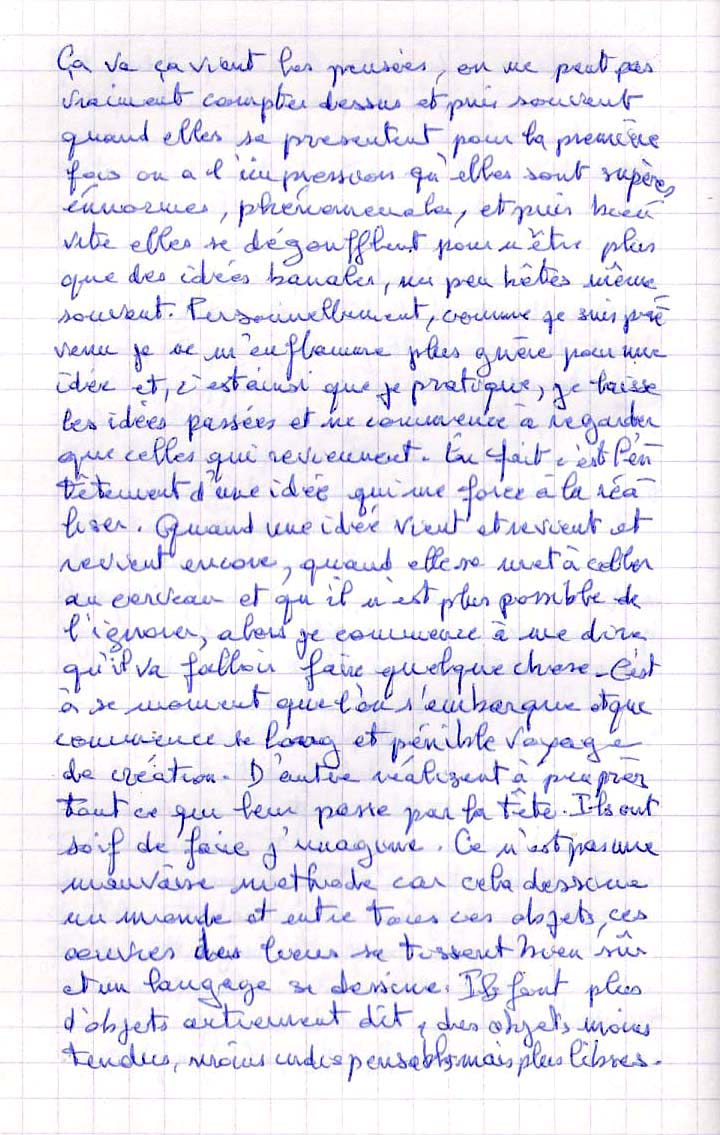 Ça va ça vient les pensées, on ne peut pas
vraiment compter dessus et puis souvent
quand elles se presentent pour la première
fois on a l'impression qu'elles sont supères,
énnormes, phénomenales, et puis bien
vite elles se dégonfflent pour n'être plus
que des idées banales, un peu bêtes même
souvent. Personnellement, comme je suis pré
venu je ne m'enflamme plus guère pour une
idée et, c'est ainsi que je pratique, je laisse
les idées passées et ne commence à regarder
que celles qui reviennent. En fait c'est l'en
têtement d'une idée qui me force à la réa
liser. Quand une idée vient et revient et
revient encore, quand elle se met à coller
au cerveau et qu'il n'est plus possible de
l'ignorer, alors je commence à me dire
qu'il va falloir faire quelque chose. C'est
à se moment que l'on s'embarque et que
commence le long et pénible voyage
de création. D'autre réalisent à peu près
tout ce qui leur passe par la tête. Ils ont
soif de faire j'imagine. Ce n'est pas une
mauvaise methode car cela dessine
un monde et entre tous ces objets, ces
oeuvres des liens se tissent bien sûr
et un langage se dessine. Ils font plus
d'objets autrement dit, des objets moins
tendus, moins indispensables mais plus libres.